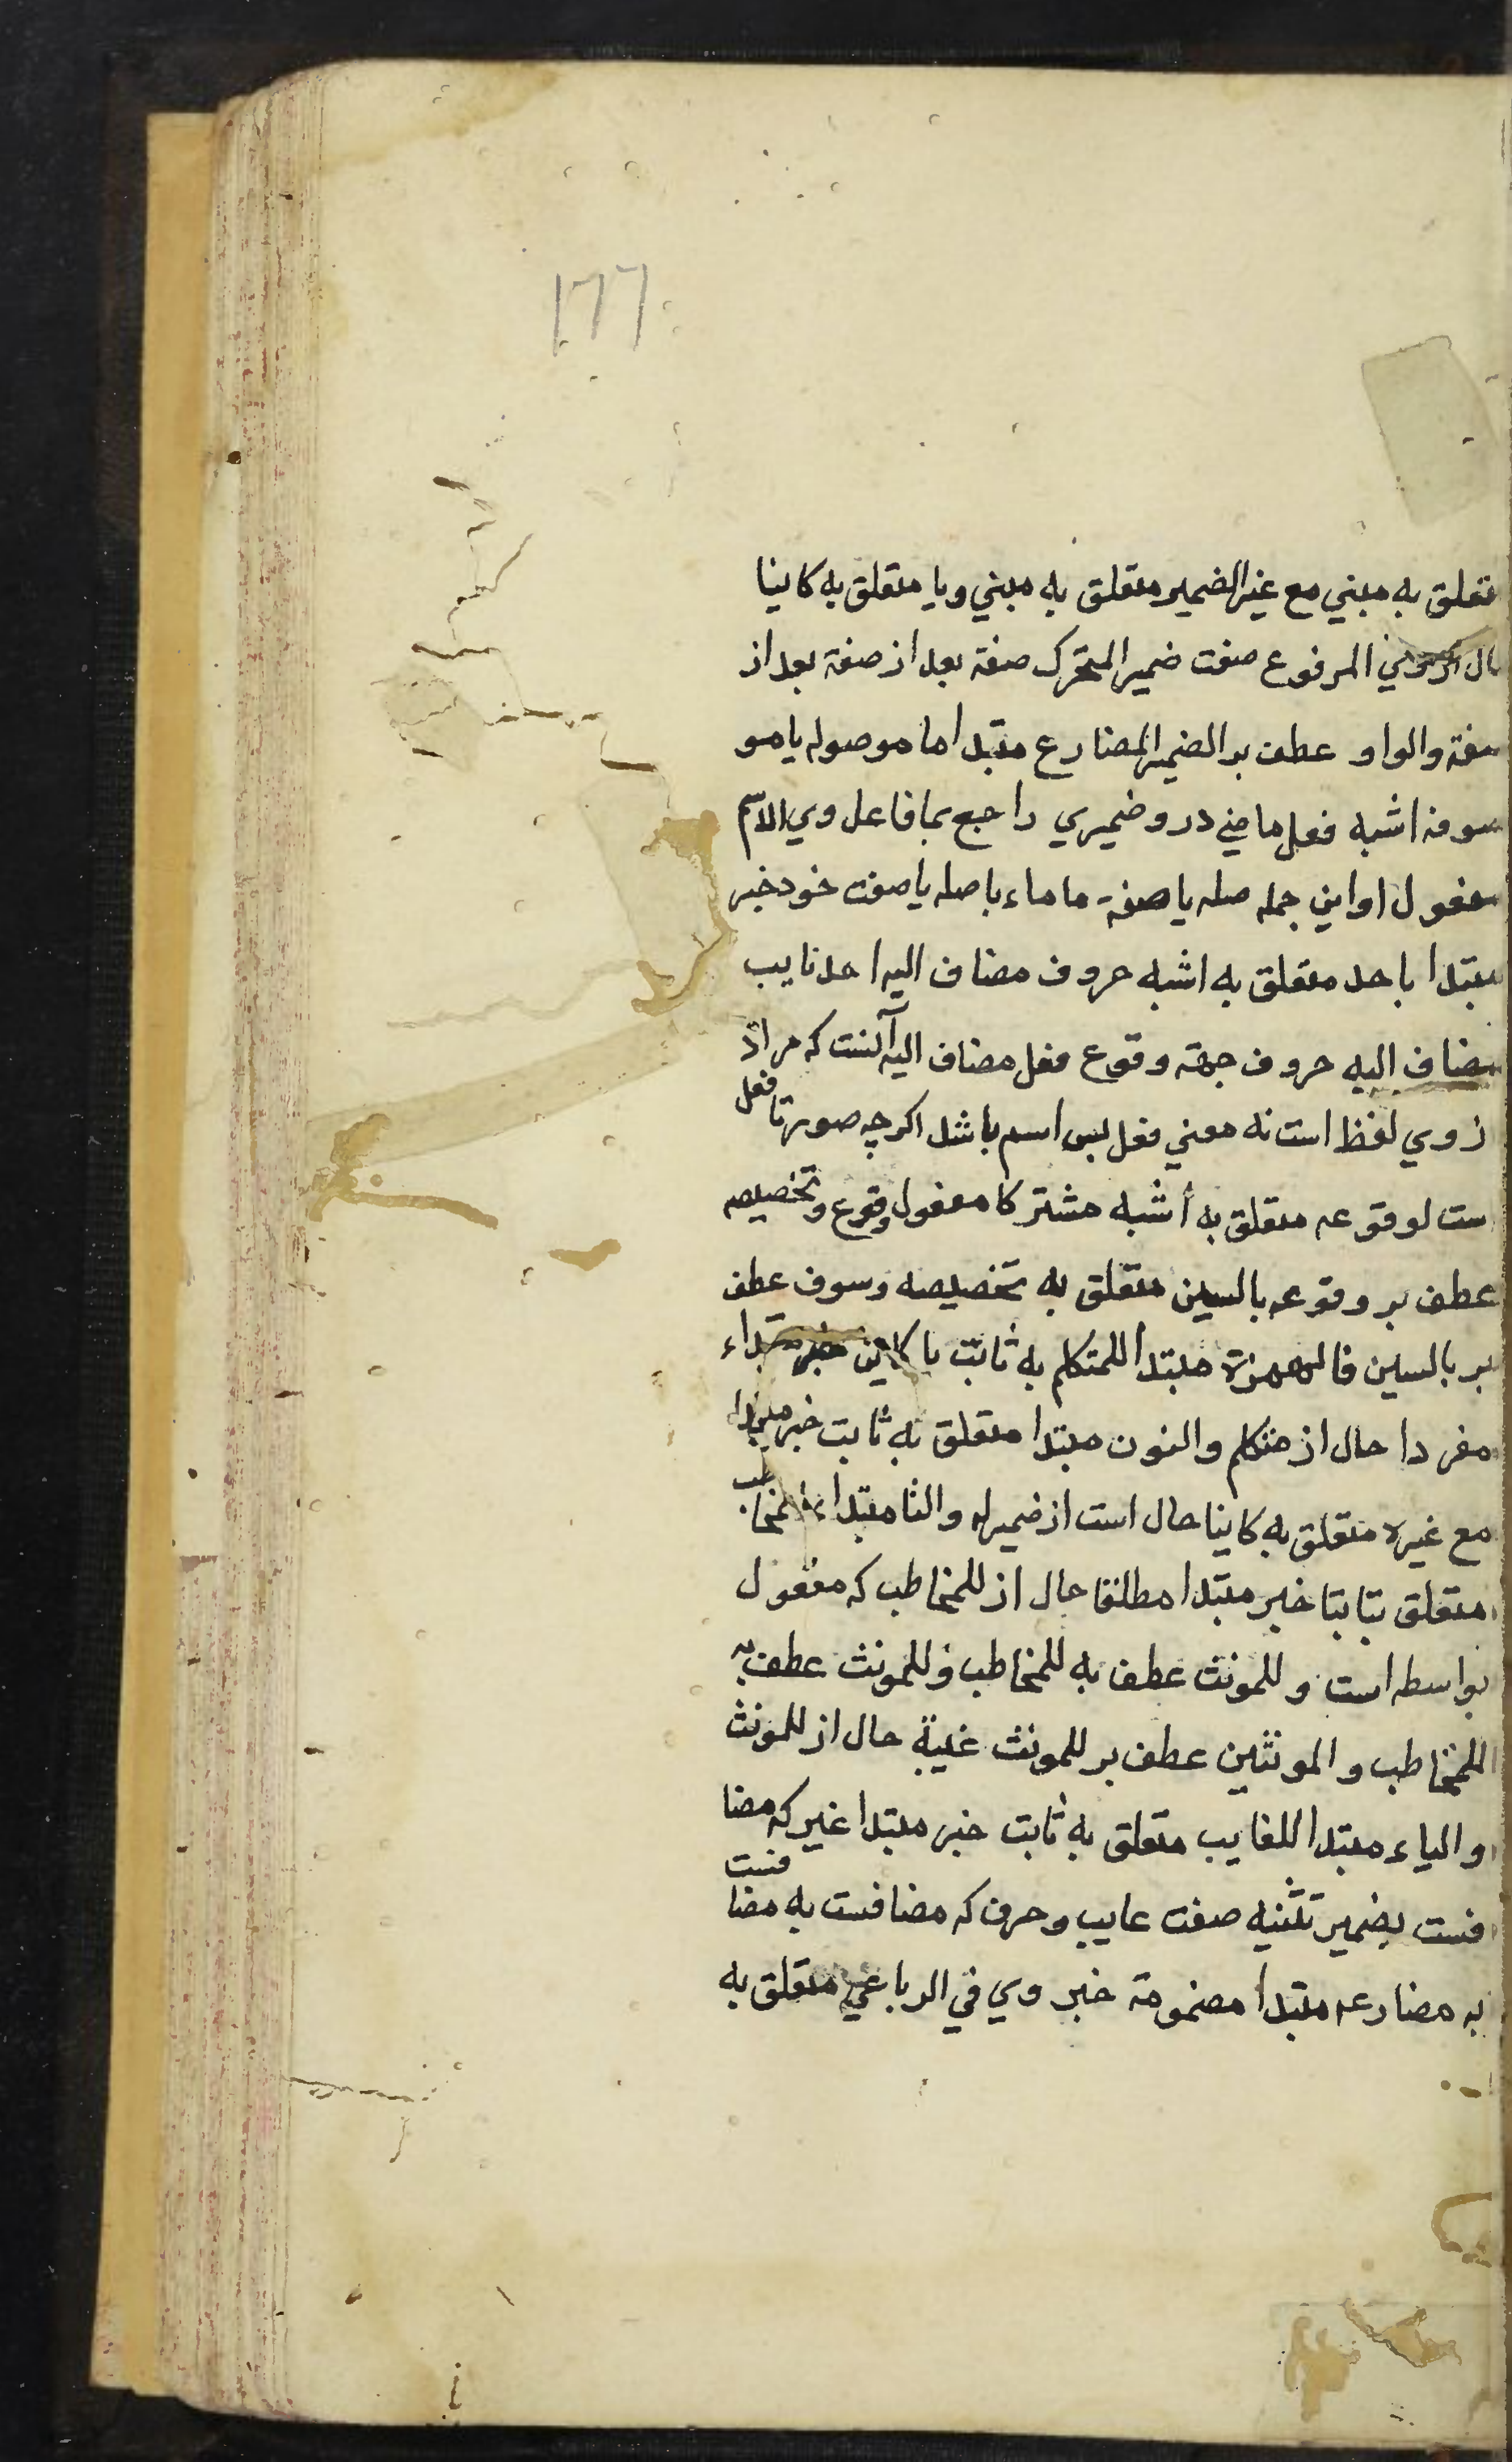 ۱۷۶
متعلق به مبني مع غير الضمير متعلق به مبني ويا متعلق به كاينا
المرفوع صفت ضمير المتحرك صفة بعد از صفة بعد از
صفة والواو عطف بر الضمير المضارع مبتدا ما موصوله يا مو
صوفه اشبه فعل ماضي درو ضميري راجع بما فاعل وي الاسم
مفعول او اين جمله صله يا صفة ما ماء با صله يا صفت خود خبر
مبتدا باحد متعلق به اشبه حروف مضاف اليه احد نايب
مضاف اليه حروف جهة وقوع فعل مضاف اليه آنست كه مراد
ازوي لفظ است نه معني فعل پس اسم باشد اكرچه صورتا فعل
ست لوقوعه متعلق به أشبه مشتركا مفعول وقوع وتخصيصه
عطف بر وقوعه بالسين متعلق به تخصيصه وسوف عطف
بر بالسين فالهمزة مبتدا للمتكلم به ثابت يا كاين خبر مبتداء
مفردا حال از متكلم والنون مبتدا متعلق به ثابت خبر مبتدا
مع غيره متعلق به كاينا حال است از ضمير له والتا مبتدا للمخاطب
متعلق بثابتا خبر مبتدا مطلقا حال از للمخاطب كه مفعول
بواسطه است وللمونث عطف به للمخاطب وللمونث عطف به
للمخاطب والمونثين عطف بر للمونث غيبة حال از للمونث
والياء مبتدا للغايب متعلق به ثابت خبر مبتدا غير كه مضا
فست بضمير تثنيه صفت عايب وحرف كه مضافست به مضا فست
به مضارعه مبتدا مضمومة خبر وي في الرباعي متعلق به